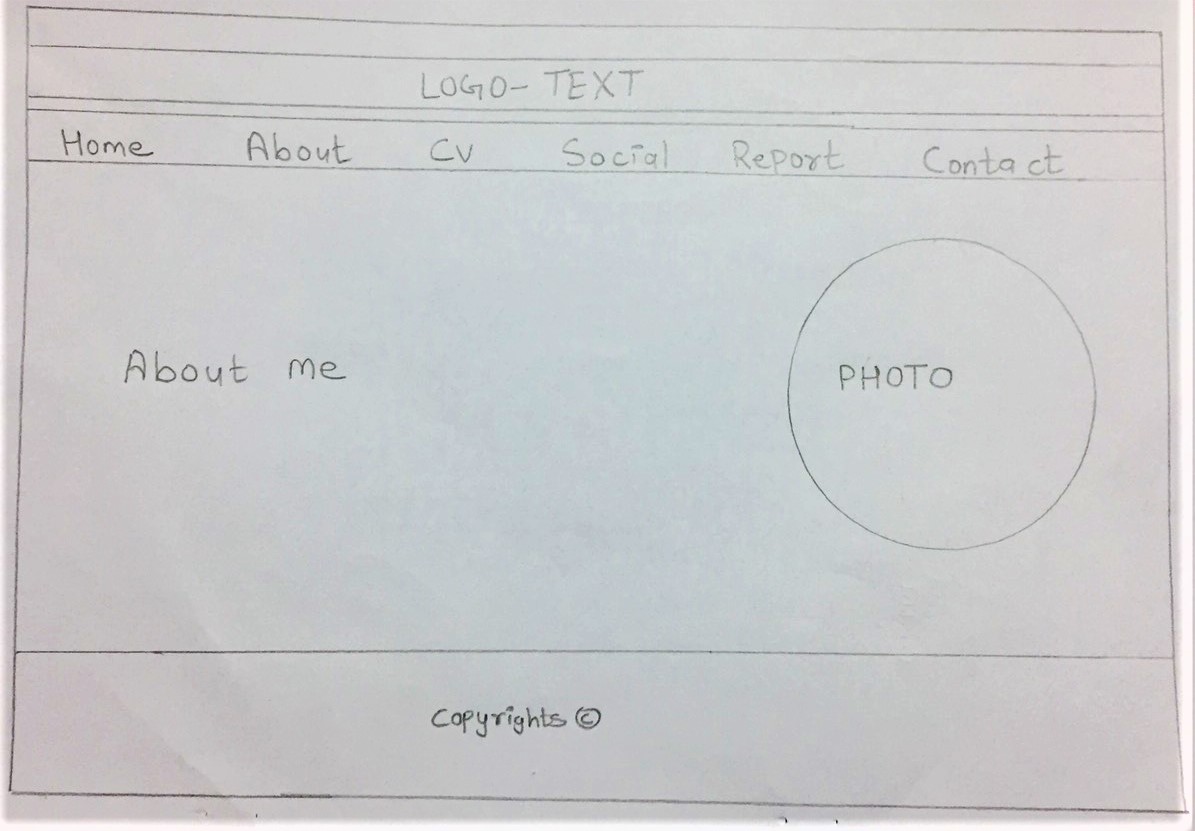 LOGO- TEXT
Home About CV Social Report Contact
About me
PHOTO
Copyrights ©